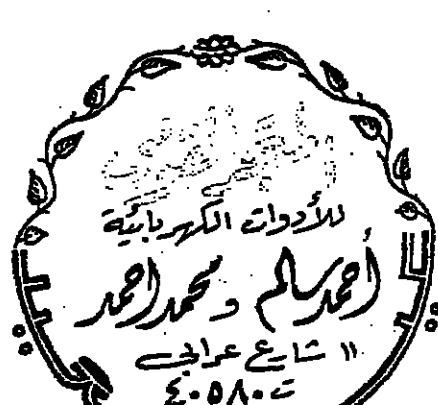 للأدوات الكهربائية
أحمد سالم و محمد احمد
١١ شارع عرابى
ت ٤٠٥٨٠